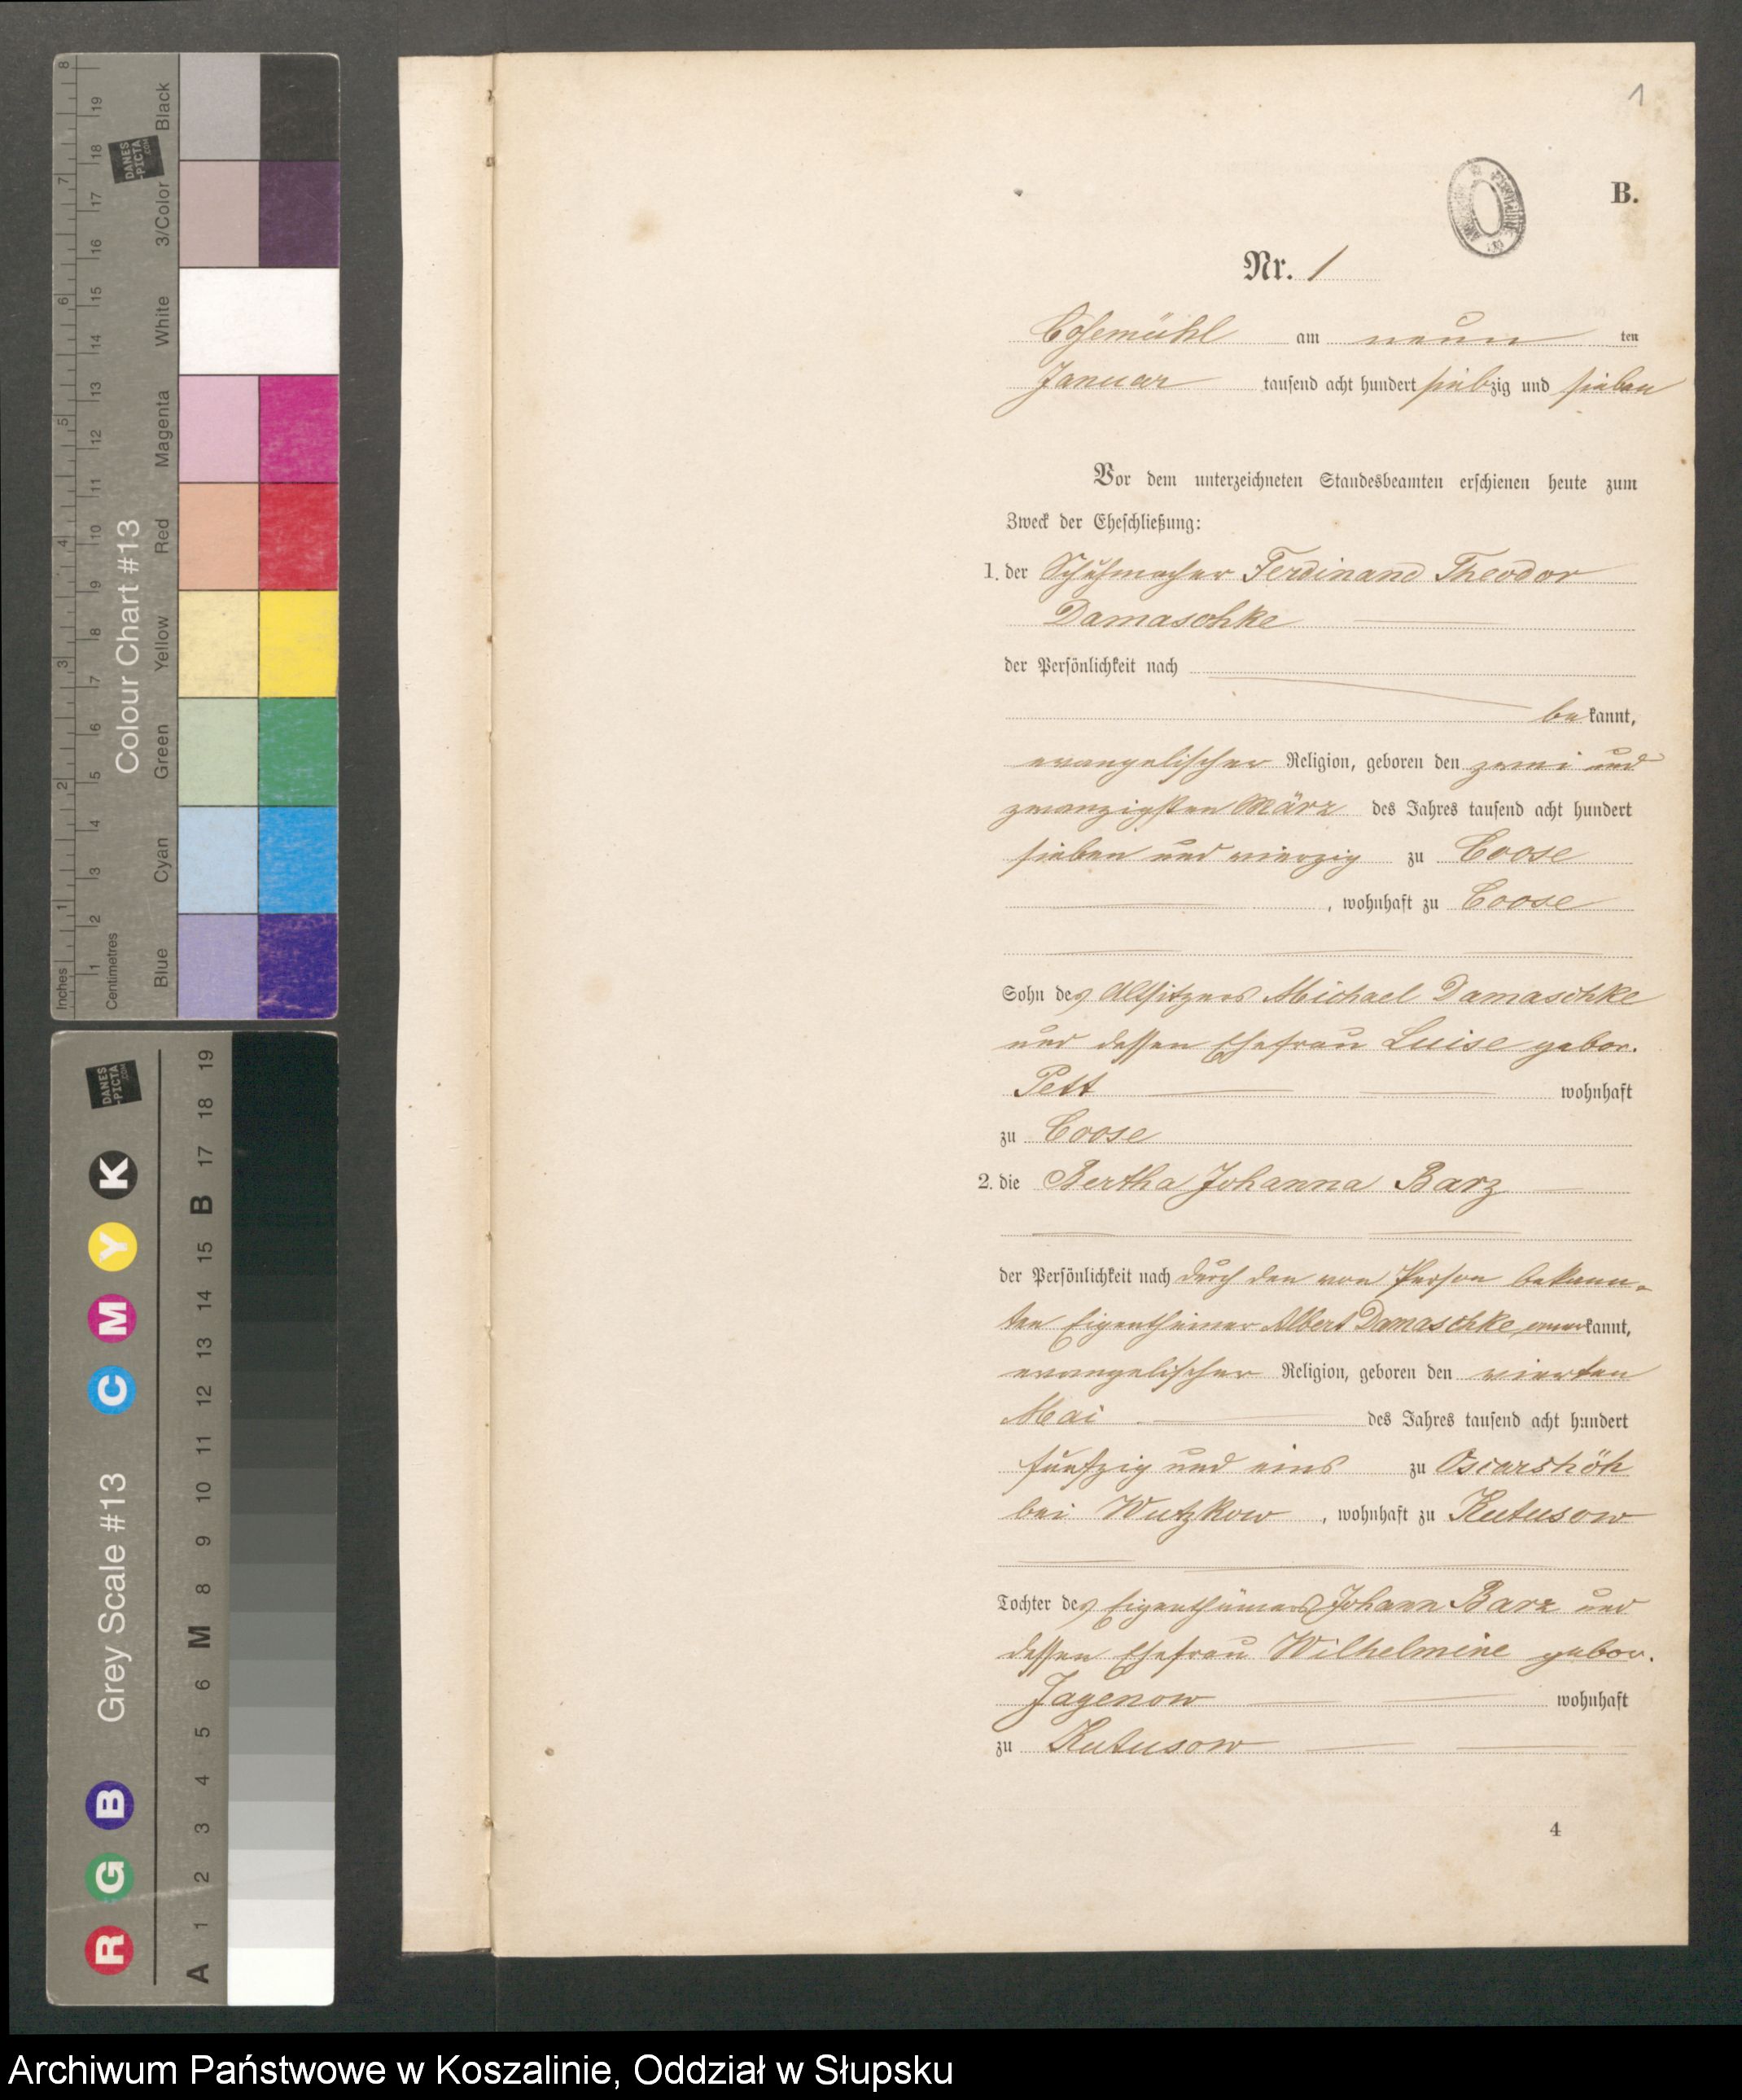 1
B.
Nr. 1
Cosemühl am neun ten
Januar tausend acht hundert siebzig und sieben
Vor dem unterzeichneten Standesbeamten erschienen heute zum
Zweck der Eheschließung:
1. der Schuhmacher Ferdinand Theodor
Damaschke
der Persönlichkeit nach
bekannt,
evangelischer Religion, geboren den zwei und
zwanzigsten März des Jahres tausend acht hundert
sieben und vierzig zu Coose
, wohnhaft zu Coose
Sohn des Altsitzers Michael Damaschke
und dessen Ehefrau Luise gebor.
Pett wohnhaft
zu Coose
2. die Bertha Johanna Barz
der Persönlichkeit nach durch den von Person bekann-
ten Eigenthümer Albert Damaschke anerkannt,
evangelischer Religion, geboren den vierten
Mai des Jahres tausend acht hundert
fünfzig und eins zu Oscarshöh
bei Wutzkow, wohnhaft zu Kutusow
Tochter des Eigenthümers Johann Barz und
dessen Ehefrau Wilhelmine gebor.
Jagenow wohnhaft
zu Kutusow
4
Inches 1 2 3 4 5 6 7 8
Centimetres 1 2 3 4 5 6 7 8 9 10 11 12 13 14 15 16 17 18 19
Colour Chart #13
Blue Cyan Green Yellow Red Magenta White 3/Color Black
DANES
-PICTA
.COM
Grey Scale #13
R G B C M Y K
A 1 2 3 4 5 6 M 8 9 10 11 12 13 14 15 B 17 18 19
DANES
-PICTA
.COM
Archiwum Państwowe w Koszalinie, Oddział w Słupsku